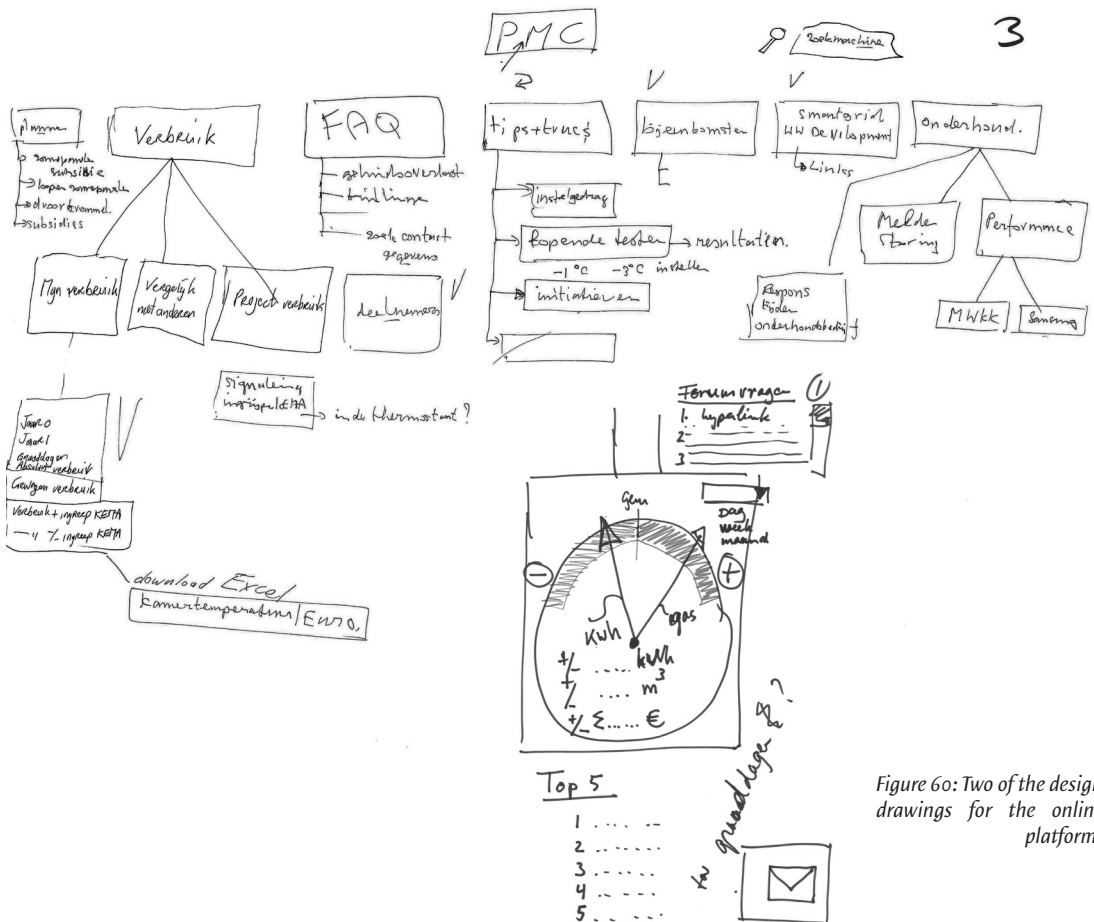 PMC
zoekmachine
3
plannen
subsidie
subsidies
Verbruik
FAQ
geluidsoverlast
zoek contact
gegevens
tips + trucs
bijeenkomsten
smartgrid
WW Development
Links
onderhoud.
instelgedrag
lopende testen → resultaten.
-1°C -3°C instellen
initiatieven
Melden
Storing
Performance
Respons
tijden
onderhoudsbedrijf
MWKK
Samsung
Mijn verbruik
Vergelijk
met anderen
Project verbruik
deelnemers
Signalering
ingreep KEMA
→ in de thermostaat?
Jaar 0
Jaar 1
Graaddagen
Absoluut verbruik
Gewogen verbruik
Verbruik + ingreep KEMA
— " — ingreep KEMA
download Excel
kamertemperatuur | Euro.
Forumvragen 1
1. hyperlink
2
3
Gem
Dag
week
maand
- +
Kwh gas
+/- ..... kWh
+/- .... m3
+/- Σ...... €
Top 5
1 .... --
2 ......
3 .....
4 .. ...
5 .. ...
graaddagen &?
Figure 60: Two of the design
drawings for the online
platform